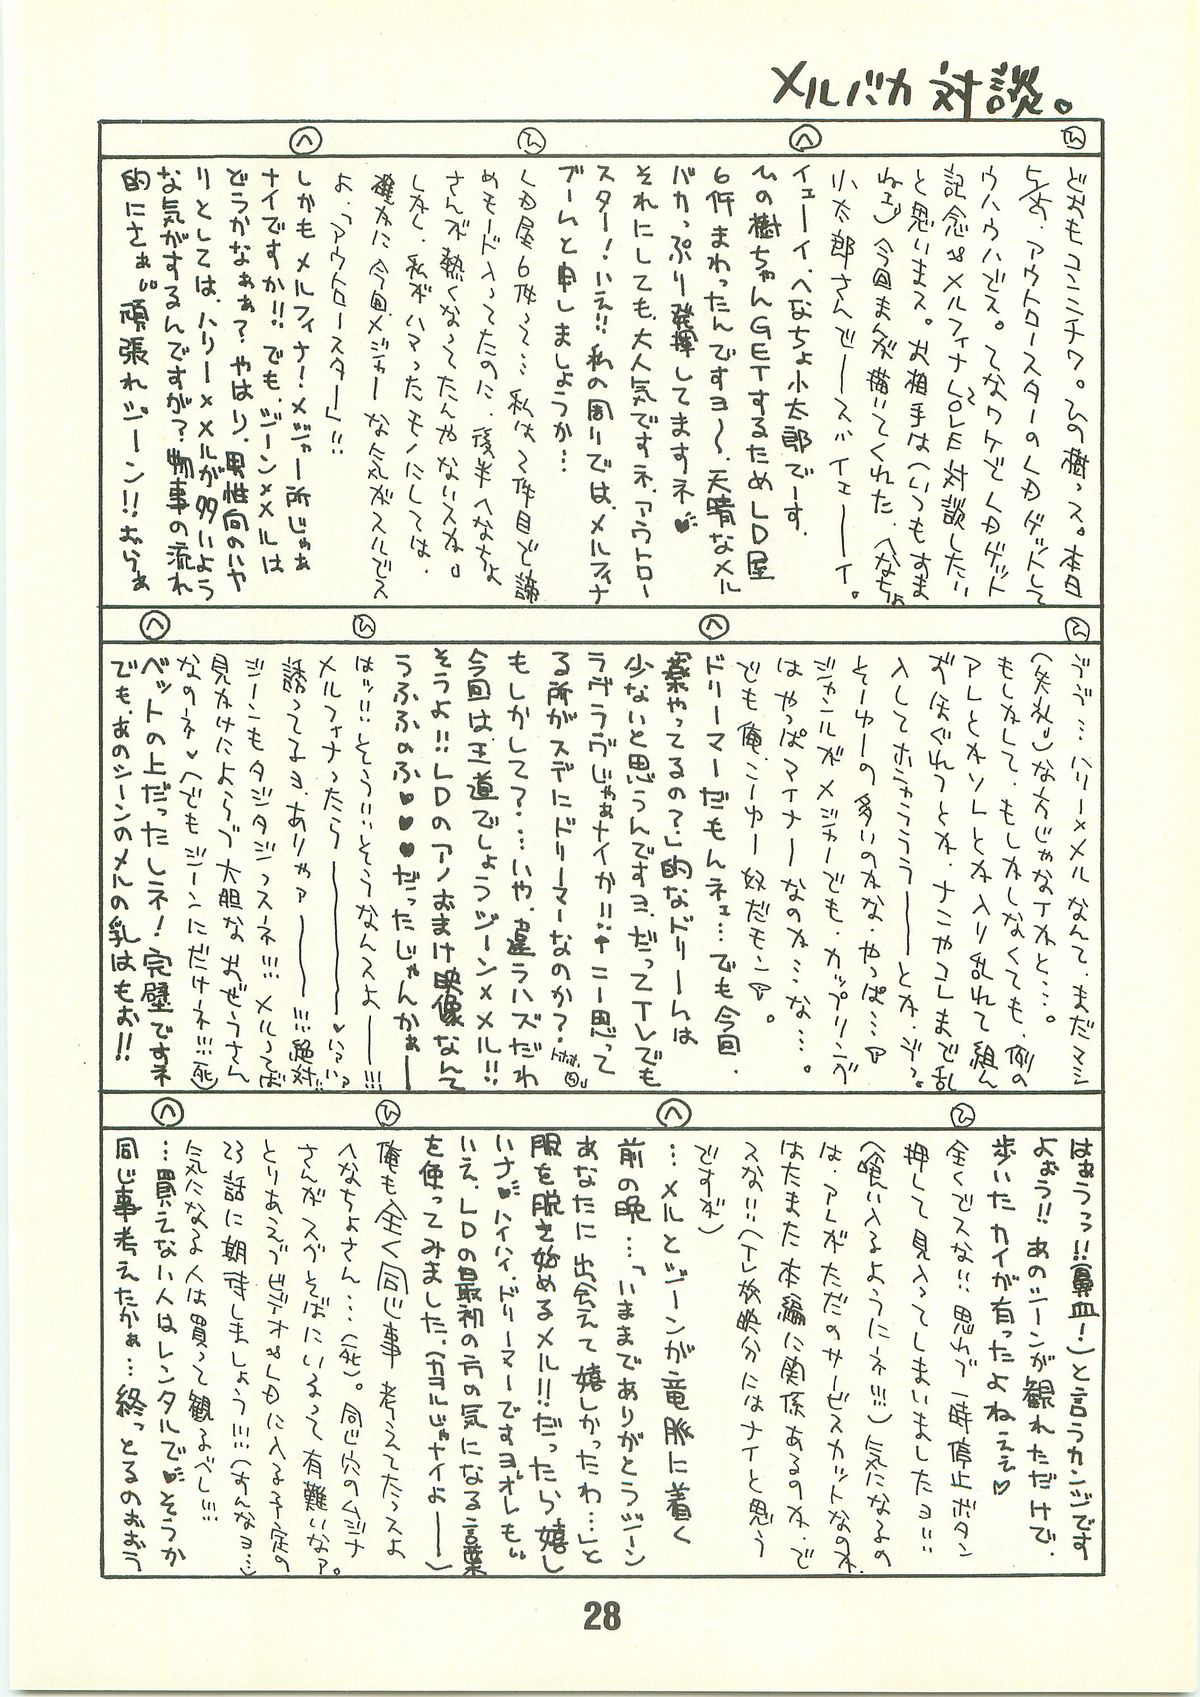 メルバカ対談。
ひ
へ
ひ
へ
どおもコンニチワ。ひの樹っス。本日
5/25、アウトロースターのLDゲットして
ウハウハでス。てなワケでLDゲット
記念&メルフィナLOVE対談したい
と思いまス。お相手は(いつもすま
ねェ)今回まんが描いてくれた、へなちょ
小太郎さんでーースバイェーーイ。
イェーーイ、へなちょ小太郎でーす。
ひの樹ちゃんGETするためLD屋
6件まわったんですヨ〜、天晴なメル
バカっぷり発揮してますネ♥
それにしても、大人気ですネ、アウトロー
スター!いえ!!私の周りでは、メルフィナ
ブームと申しましょうか…
LD屋6件って…私は2件目で諦
めモード入ってたのに、後半へなちょ
さんが熱くなってたんやないスか。
しかし、私がハマったモノにしては、
確かに今回メジャーな気がスルでス
よ、「アウトロースター」!!
しかもメルフィナ!メジャー所じゃぁ
ナイですか!!でも、ジーン×メルは
どうかなぁぁ?やはり、男性向のハヤ
リとしては、ハリー×メルが多いよう
な気がするんですが?物事の流れ
的にさぁ!!頑張れジーン!!おらぁ
ひ
へ
ひ
へ
うう…ハリー×メルなんて、まだマシ
(失礼)な方じゃなTかと…。
もしかして、もしかしなくても、例の
アレとかソレとか入り乱れて組ん
ずほぐれつとか、ナニやコレまで乱
入してホニャラララーーとか、ジャ。
そーゆーの多いのかな、やっぱ…
ジャンルがメジャーでも、カップリングが
はやっぱマイナーなのか…な…。
でも俺、こーゆー奴だモン。
ドリーマーだもんネェ…でも今回、
「薬やってるの?」的なドリームは
少ないと思うんですヨ、だってTVでも
ラヴラヴじゃぁナイか!!↑こー思って
る所がスデにドリーマーなのか?
もしかして?…いや、違うハズだわ
今回は王道でしょうジーン×メル!!
そうよ!!LDのアノおまけ映像なんて
うふふのふ♥♥♥だったじゃんかぁー
はッ!!そう!!そうなんスよーー!!!
メルフィナったらーーーー♥いつ?
誘ってるヨ、ありゃァーーー!!!絶対!!
ジーンもタジタジっスネ!!! メルってば
見かけによらず大胆なおぜうさん
なのネ♥(でもジーンにだけネ!!!死)
ベットの上だったしネ!完璧ですネ
でも、あのシーンのメルの乳はもお!!
ひ
へ
ひ
へ
はぁうっっ!!(鼻血!)と言うカンジです
よぉう!!あのシーンが観れただけで、
歩いたカイが有ったよねぇぇ♥
全くでスな!!思わず一時停止ボタン
押して見入ってしまいましたヨ!!
(喰い入るようにネ!!!)気になるの
は、アレがただのサービスカットなのか、
はたまた本編に関係あるのか、で
スな!!!(TV放映分にはナイと思う
ですが)
…メルとジーンが竜脈に着く
前の晩…「いままでありがとうジーン
あなたに出会えて嬉しかったわ…」と
服を脱ぎ始めるメル!!だったら嬉し
いさ♥ハイハイ、ドリーマーですヨオレも!!
いえ、LDの最初の方の気になる言葉
を使ってみました。(カヨルじゃナイよーー)
俺も全く同じ事考えてたっスよ
へなちょさん…(死)。同じ穴のムジナ
さんがスぐそばにいるって有難いなァ。
とりあえずビデオ&LDに入る予定の
23話に期待しましょう!!!(なんなヨ…)
気になる人は買って観るべし!!!
…買えない人はレンタルで♥そうか
同じ事考えたかぁ…終っとるのおおう
28